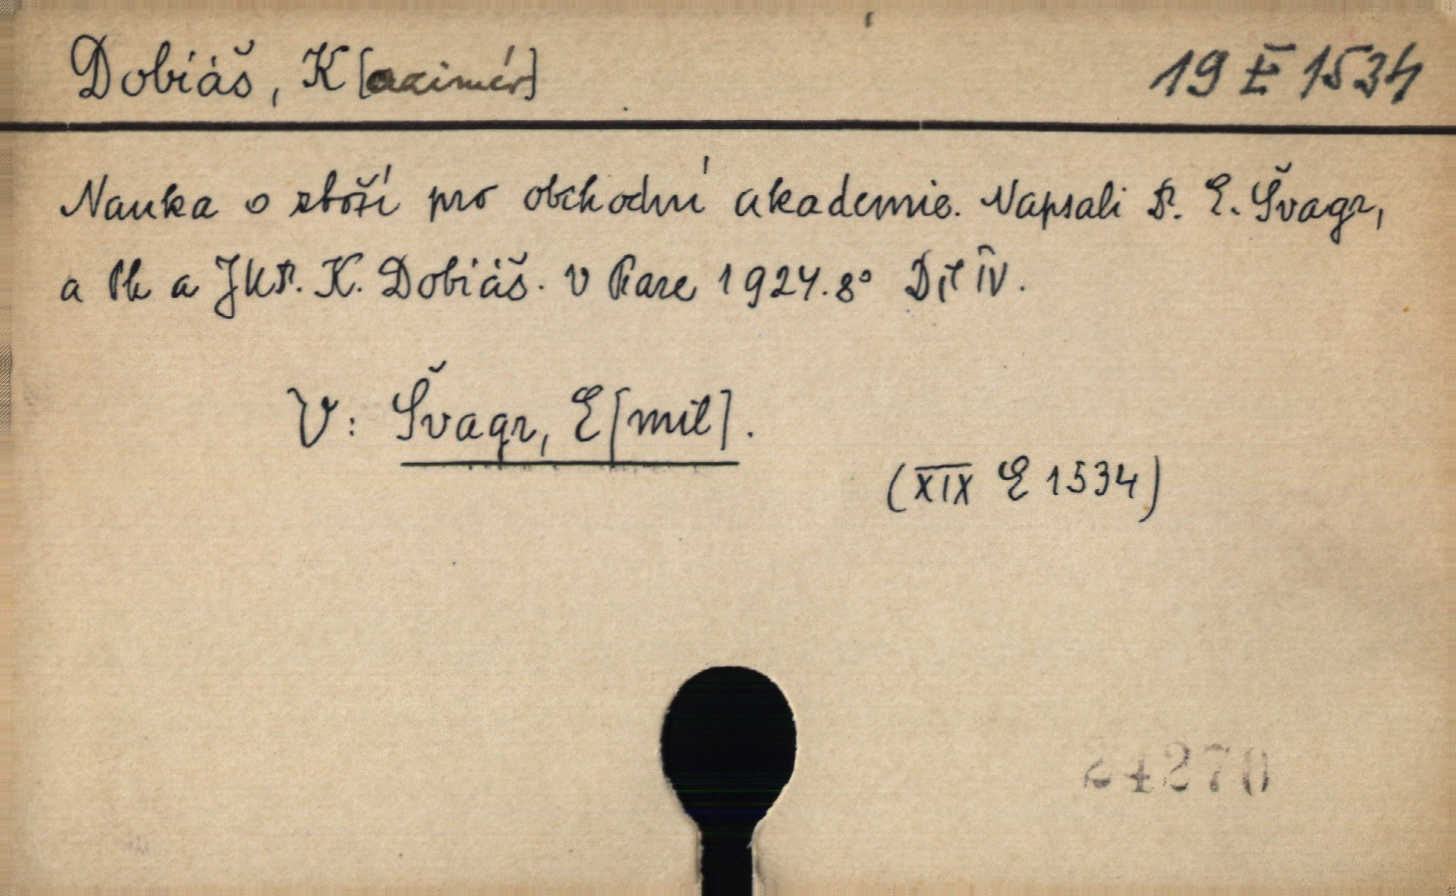 Dobiáš, K[azimír] 19 E 1534
Nauka o zboží pro obchodní akademie. Napsali D. E. Švagr,
a Ph a JUD. K. Dobiáš. V Praze 1924. 8° Díl IV.
V: Švagr, E[mil].
(XIX E 1534)
24270